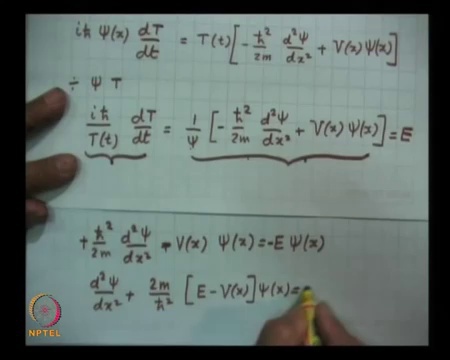 iħ Ψ(x) dT/dt = T(t)[-ħ²/2m d²Ψ/dx² + V(x)Ψ(x)]
÷ Ψ T
iħ/T(t) dT/dt = 1/Ψ [-ħ²/2m d²Ψ/dx² + V(x)Ψ(x)] = E
+ħ²/2m d²Ψ/dx² - V(x) Ψ(x) = -E Ψ(x)
d²Ψ/dx² + 2m/ħ² [E - V(x)]Ψ(x) =
NPTEL